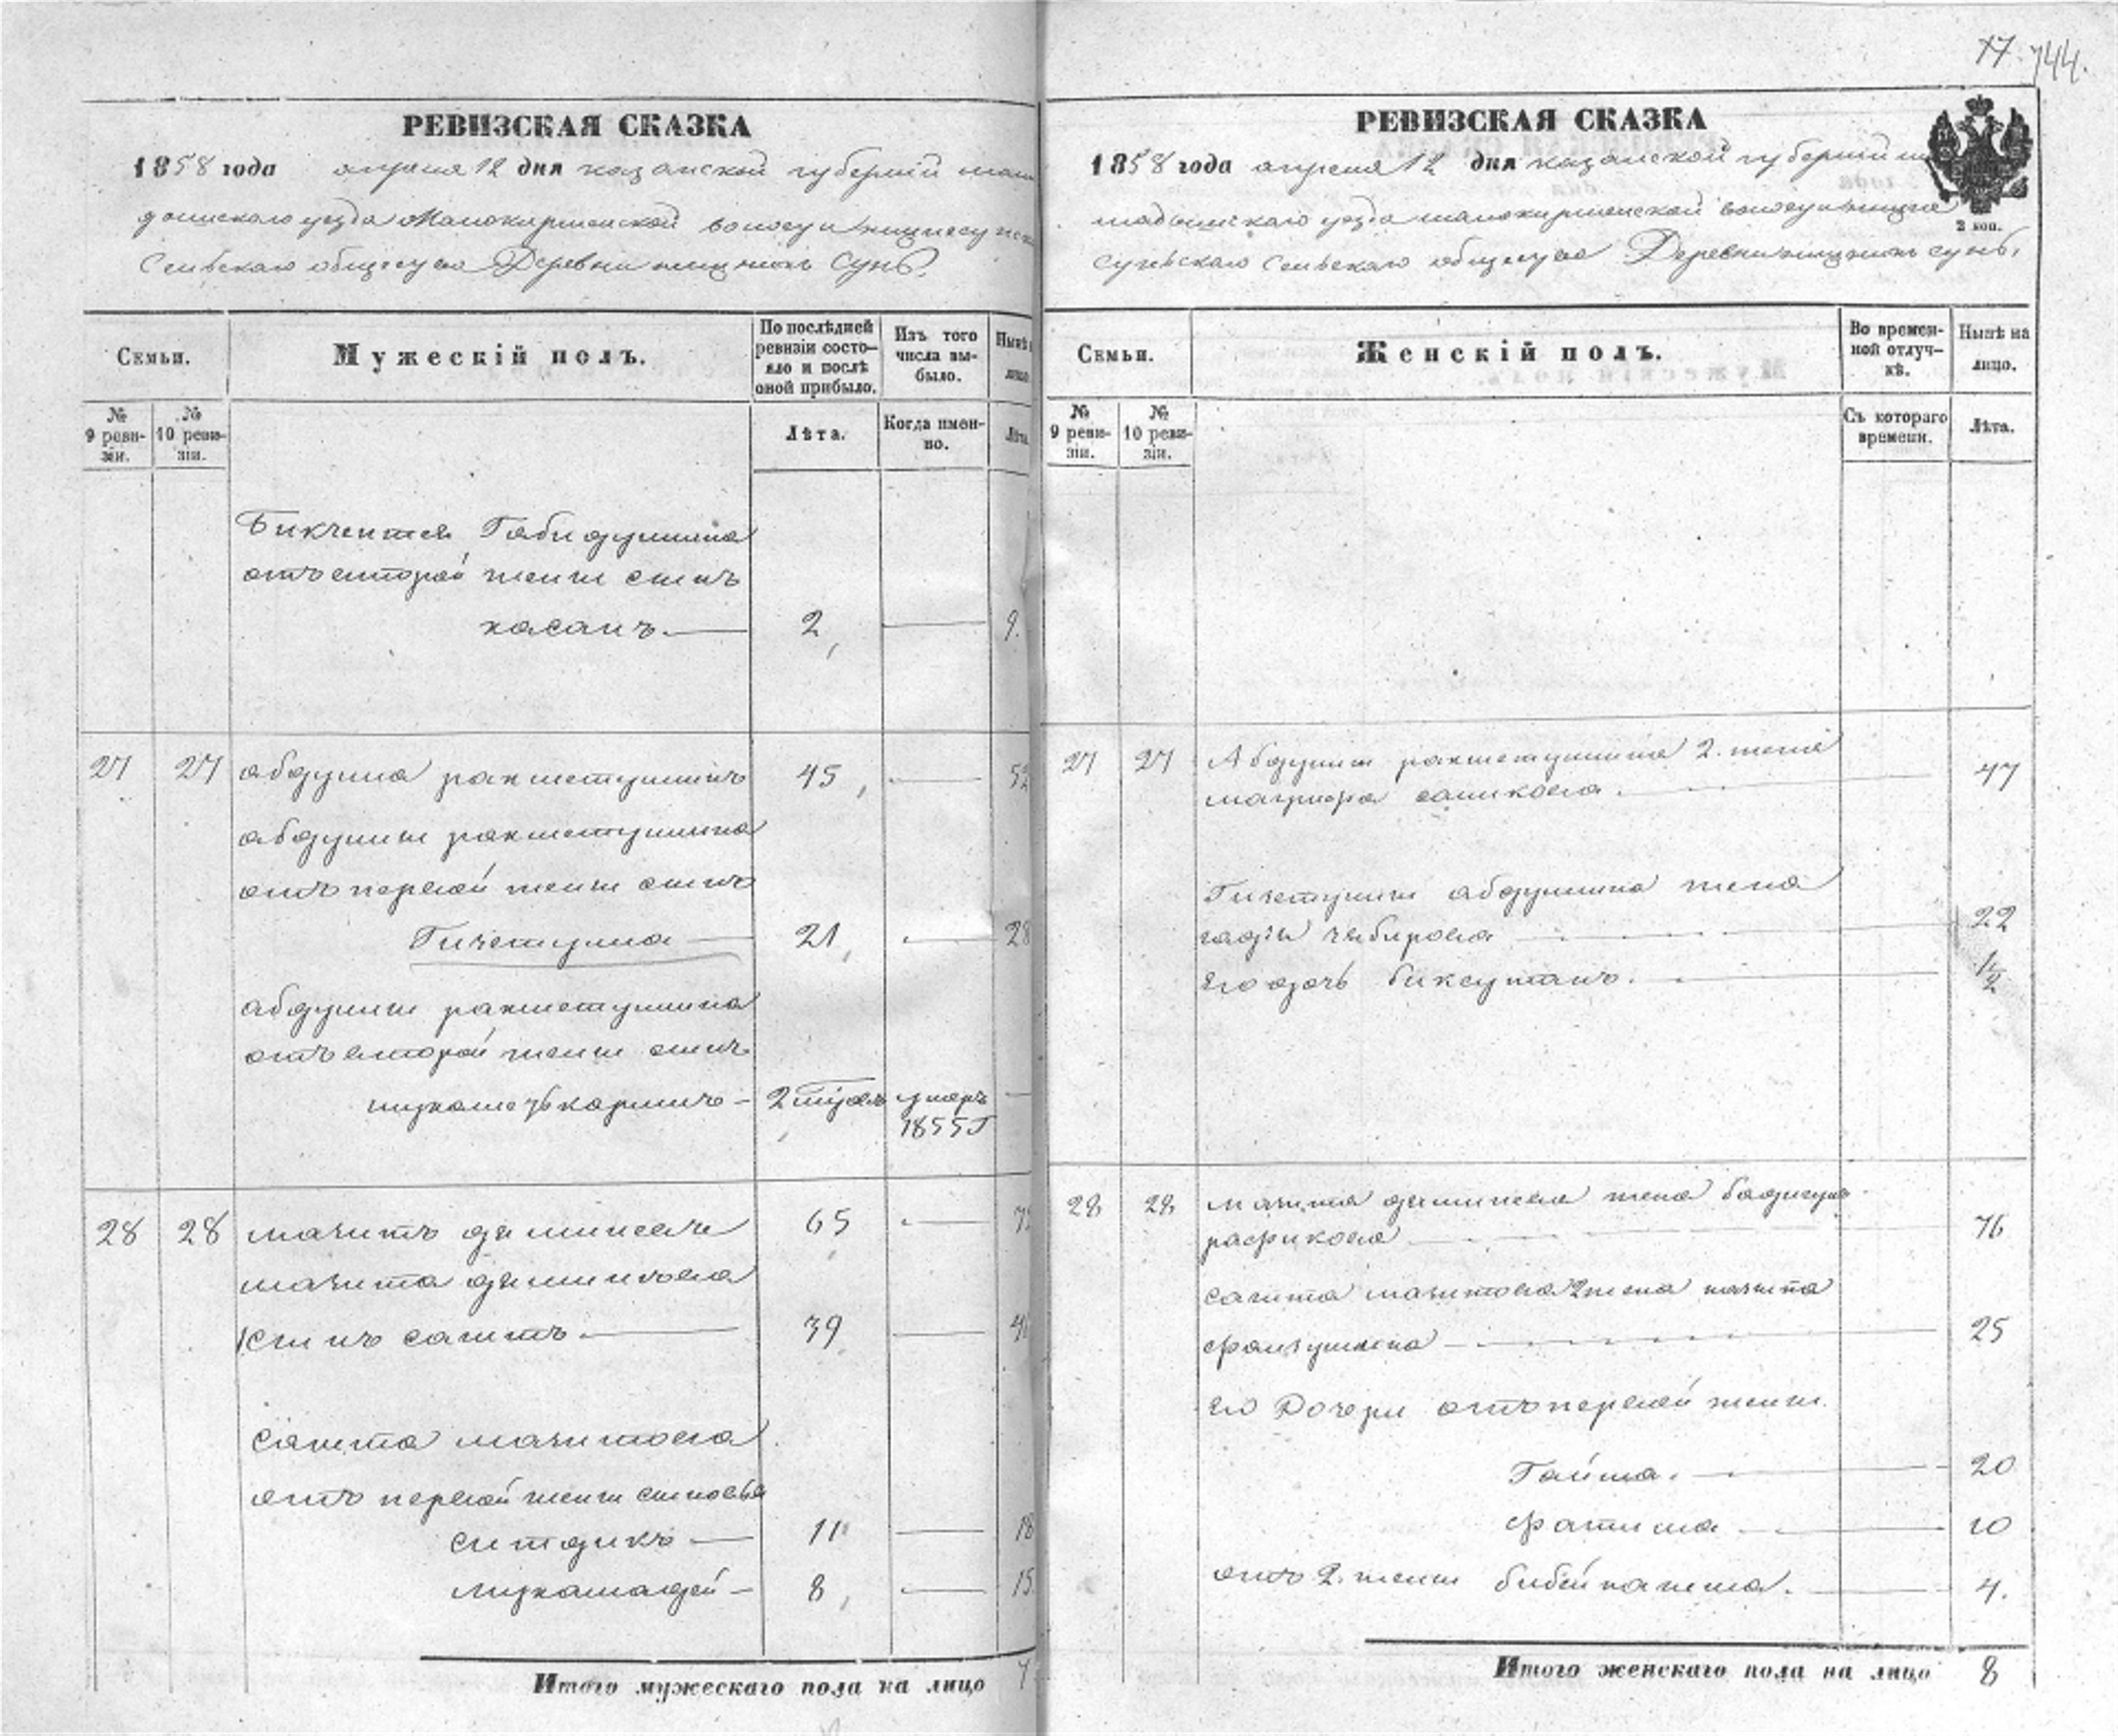 17. 744.
РЕВИЗСКАЯ СКАЗКА
1858 года апреля 12 дня казанской губерніи мам
дышскаго уезда Малокирменской волости нищесунск
Сельскаго общества Деревни нищихъ Сунь.
Семьи.
Мужескій полъ.
По послѣдней ревизіи состо-
яло и послѣ оной прибыло.
Изъ того числа вы-
было.
Нынѣ на лицо
№ 9 реви-
зіи.
№ 10 реви-
зіи.
Лѣта.
Когда имен-
но.
Лѣта
Бикчентея Габидуллина
отъ второй жены сынъ
хасанъ. 2 9.
27 27 абдулла рахметуллинъ 45 52
абдуллы рахметуллина
отъ первой жены сынъ
Гизетулла 21 28
абдуллы рахметуллина
отъ второй жены сынъ
2 умеръ
1855 Г
28 28 мачитъ 65 72
мачита
сынъ сагитъ 39 46
Сагита мачитова
отъ первой жены сыновья
ситдикъ 11 18
мухамадей 8 15
Итого мужескаго пола на лицо 7
РЕВИЗСКАЯ СКАЗКА
1858 года апреля 12 дня казанской губерніи
мадышскаго уезда малокирменской волости
Сельскаго общества Деревни нищихъ сунь,
2 коп.
Семьи.
Женскій полъ.
Во времен-
ной отлуч-
кѣ.
Нынѣ на
лицо.
№ 9 реви-
зіи.
№ 10 реви-
зіи.
Съ котораго
времени.
Лѣта.
27 27 Абдуллы рахметуллина 2. жена
саликова. 47
Гизетуллы абдуллина жена
чабирова 22
Его дочь 1/2
28 28 мачита жена
рафикова 76
сагита мачитова 2 жена
файзуллина 25
Его Дочери отъ первой жены.
Гайша. 20
фатима 10
отъ 2. жены 4.
Итого женскаго пола на лицо 8